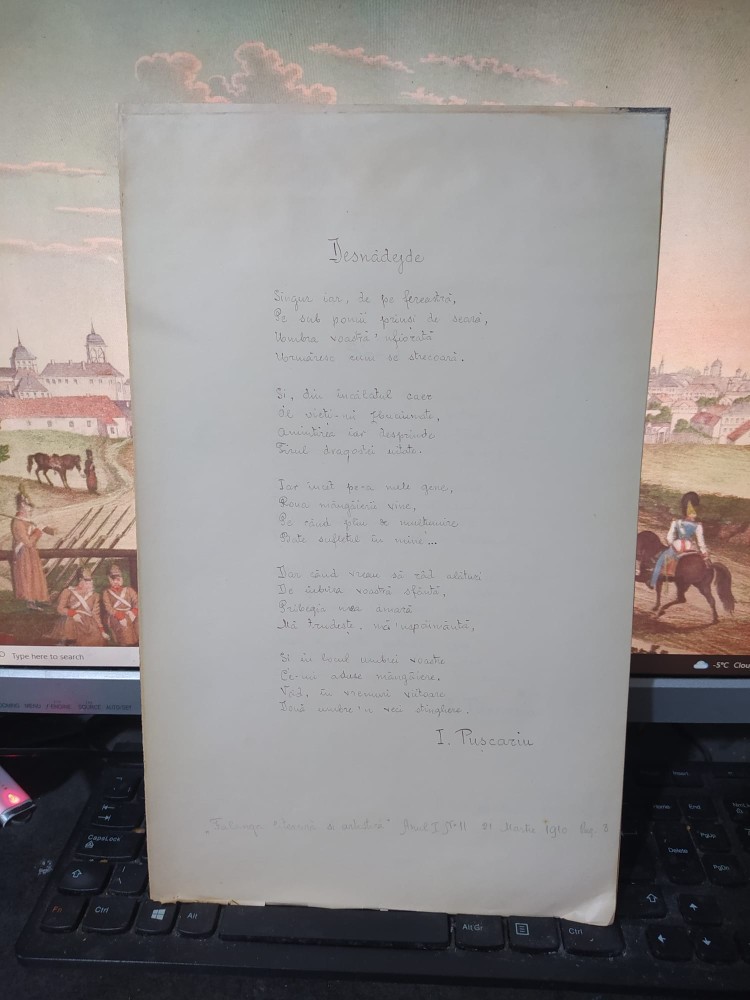 Desnădejde
Singur iar, de pe fereastră,
Pe sub pomii prinși de seară,
Umbra voastră 'nfiorată
Urmăresc cum se strecoară.
Și, din încâlcitul caer
Al vieți-mi sbuciumate,
Amintirea iar desprinde
Firul dragostei uitate.
Iar încet pe-a mele gene,
Roua mângâierii vine,
Pe când plin de mulțumire
Bate sufletul în mine...
Dar când vreau să râd alături
De iubirea voastră sfântă,
Pribegia mea amară
Mă trudește, mă 'nspăimântă,
Și în locul umbrei voastre
Ce-mi aduse mângâere,
Văd, în vremuri viitoare
Două umbre 'n veci stinghere.
I. Pușcariu
„Falanga literară și artistică" Anul I, Nº 11 21 Martie 1910 Pag. 8
Type here to search
-5°C Clou
SOURCE
CapsLock
Fn
Ctrl
Alt
Alt Gr
Ctrl
Insert
Home
End
Delete
PgUp
PgDn